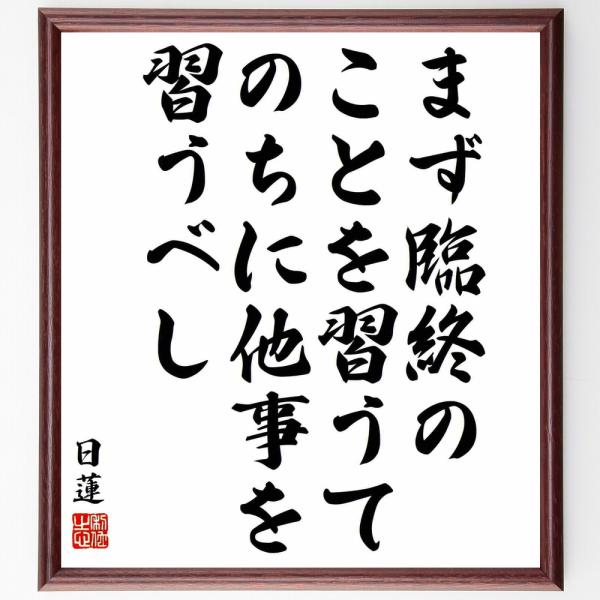 まず臨終の
ことを習うて
のちに他事を
習うべし
日蓮